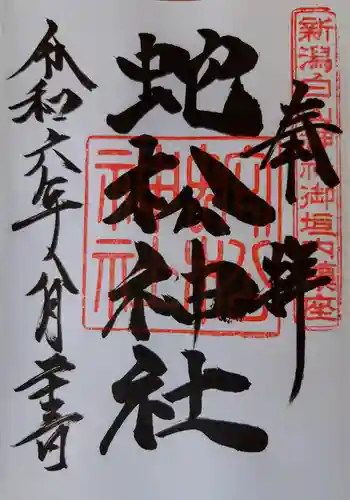 新潟白山神社御垣内鎮座
奉拝
蛇松神社
蛇松神社
令和六年八月二十壱日